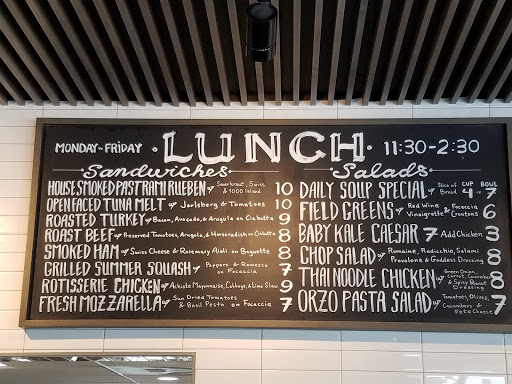 MONDAY-FRIDAY · LUNCH · 11:30-2:30
Sandwiches
HOUSE SMOKED PASTRAMI RUEBEN w/ Sauerkraut, Swiss & 1000 Island 10
OPEN FACED TUNA MELT w/ Jarlsberg & Tomatoes 10
ROASTED TURKEY w/ Bacon, Avocado, & Arugula on Ciabatta 9
ROAST BEEF w/ Preserved Tomatoes, Arugula, & Horseradish on Ciabatta 8
SMOKED HAM w/ Swiss Cheese & Rosemary Aioli on Baguette 8
GRILLED SUMMER SQUASH w/ Peppers & Romesco on Focaccia 7
ROTISSERIE CHICKEN w/ Achiote Mayonnaise, Cabbage, & Lime Slaw 9
FRESH MOZZARELLA w/ Sun Dried Tomatoes & Basil Pesto on Focaccia 7
Salads
DAILY SOUP SPECIAL w/ Slice of Bread CUP 4 - BOWL 7
FIELD GREENS w/ Red Wine Vinaigrette & Focaccia Croutons 6
BABY KALE CAESAR 7 Add Chicken 3
CHOP SALAD w/ Romaine, Radicchio, Salami Provolone & Goddess Dressing 8
THAI NOODLE CHICKEN w/ Green Onion, Carrot, Cucumber & Spicy Peanut Dressing 8
ORZO PASTA SALAD w/ Tomatoes, Olives, Cucumbers & Feta Cheese 7